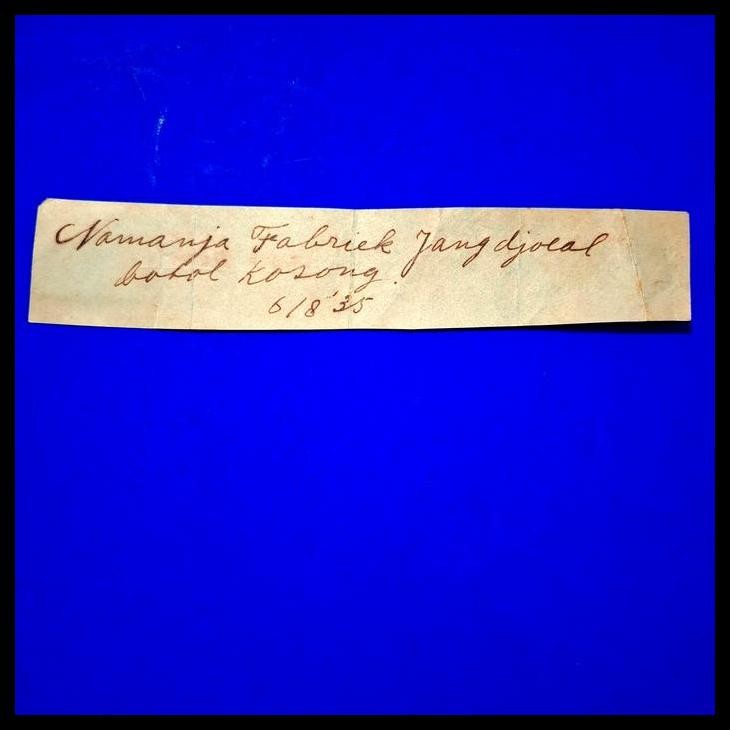 Namanja Fabriek Jang djoeal
botol kosong.
6/8 '35